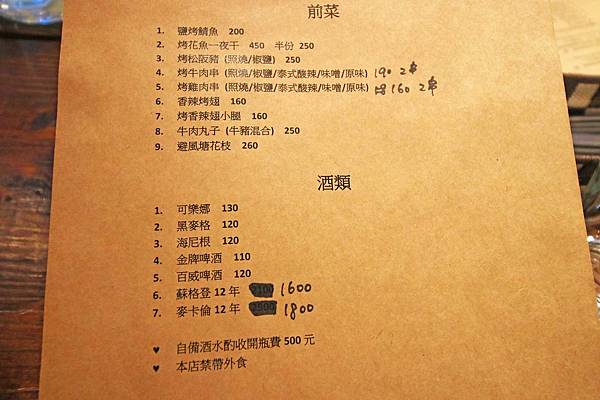 前菜
1. 鹽烤鯖魚 200
2. 烤花魚一夜干 450 半份 250
3. 烤松阪豬 (照燒/椒鹽) 250
4. 烤牛肉串 (照燒/椒鹽/泰式酸辣/味噌/原味) 190 2串
5. 烤雞肉串 (照燒/椒鹽/泰式酸辣/味噌/原味) 160 2串
6. 香辣烤翅 160
7. 烤香辣翅小腿 160
8. 牛肉丸子 (牛豬混合) 250
9. 避風塘花枝 260
酒類
1. 可樂娜 130
2. 黑麥格 120
3. 海尼根 120
4. 金牌啤酒 110
5. 百威啤酒 120
6. 蘇格登 12 年 1600
7. 麥卡倫 12 年 1800
♥ 自備酒水酌收開瓶費 500 元
♥ 本店禁帶外食